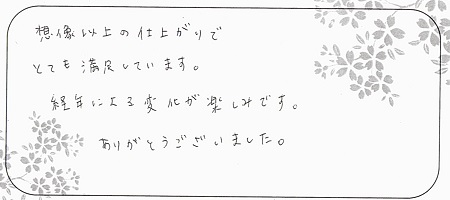 想像以上の仕上がりで
とても満足しています。
経年による変化が楽しみです。
ありがとうございました。